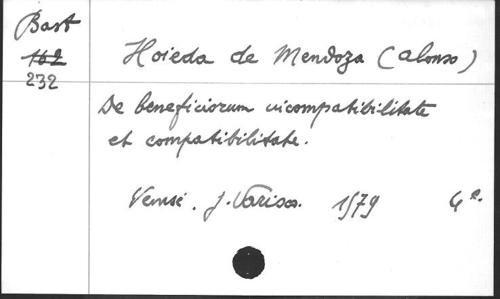 Bast
162
232
Hoieda de Mendoza (Alonso)
De beneficiorum incompatibilitate
et compatibilitate.
Venise. J. Varisco. 1579 4°.